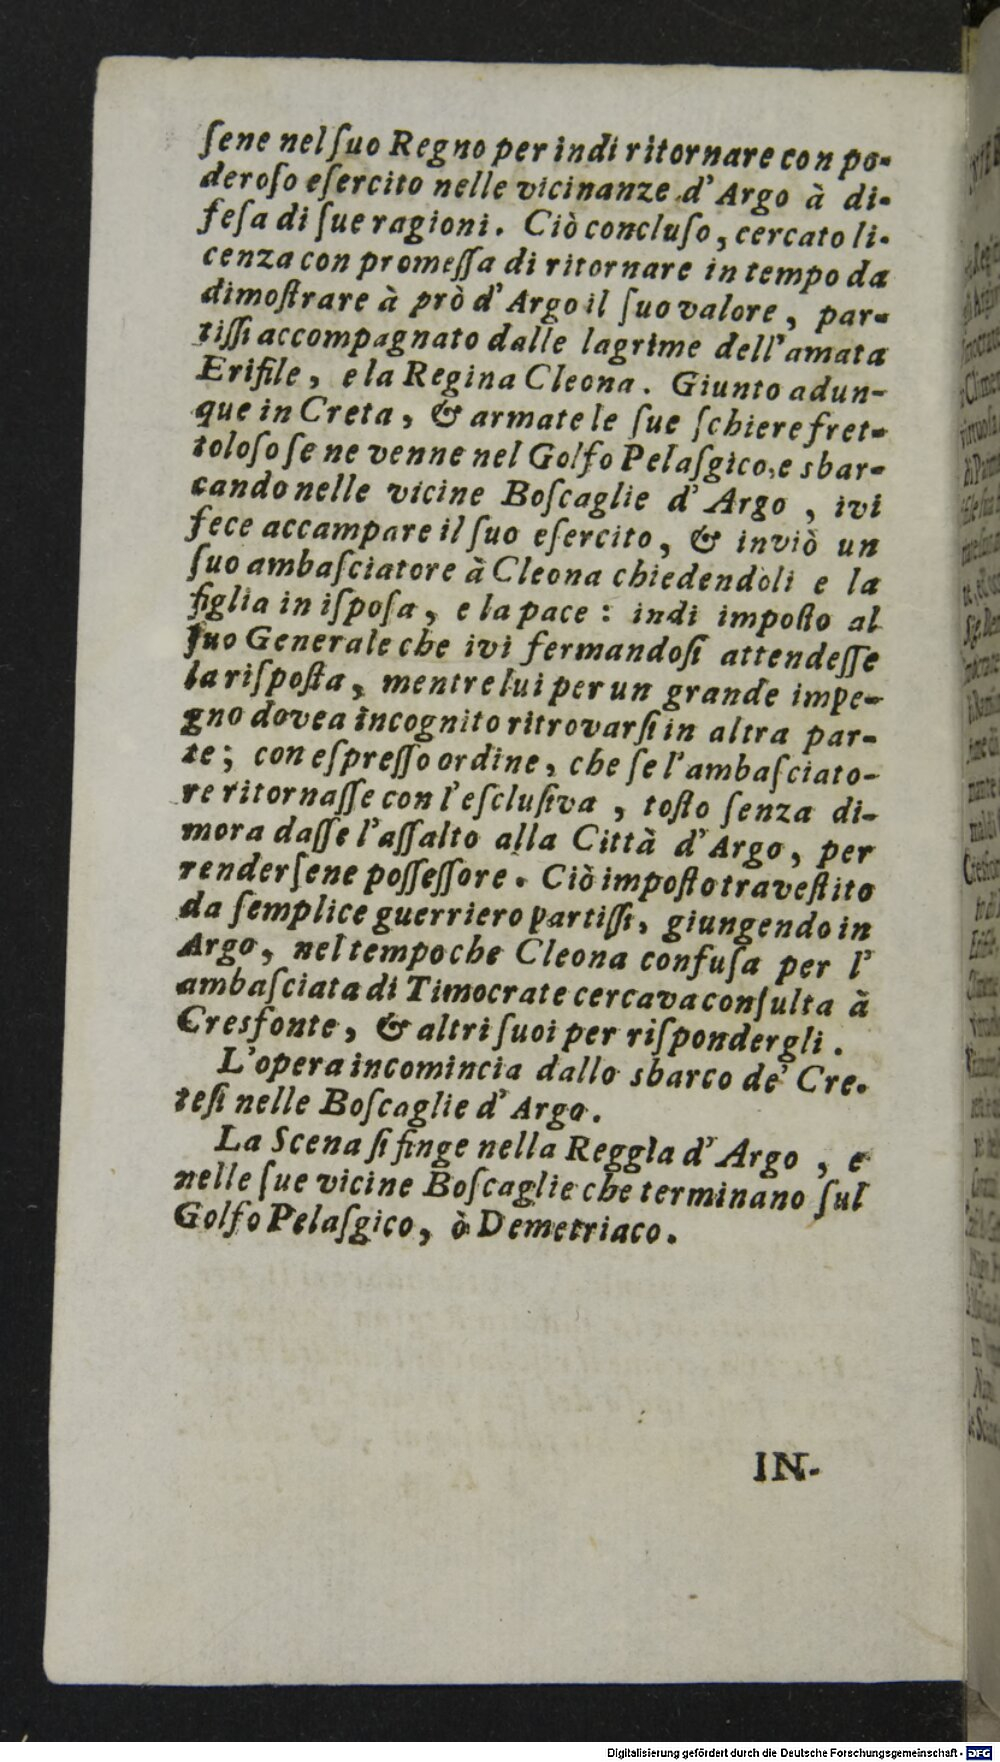 ſene nel ſuo Regno per indi ritornare con po-
deroſo eſercito nelle vicinanze d'Argo à di-
feſa di ſue ragioni. Ciò concluſo, cercato li-
cenza con promeſſa di ritornare in tempo da
dimoſtrare à prò d'Argo il ſuo valore, par-
tiſſi accompagnato dalle lagrime dell'amata
Erifile, e la Regina Cleona. Giunto adun-
que in Creta, & armate le ſue ſchiere fret-
toloſo ſe ne venne nel Golfo Pelaſgico, e sbar-
cando nelle vicine Boſcaglie d'Argo, ivi
fece accampare il ſuo eſercito, & inviò un
ſuo ambaſciatore à Cleona chiedendoli e la
figlia in iſpoſa, e la pace: indi impoſto al
ſuo Generale che ivi fermandoſi attendeſſe
la riſpoſta, mentre lui per un grande impe-
gno dovea incognito ritrovarſi in altra par-
te; con eſpreſſo ordine, che ſe l'ambaſciato-
re ritornaſſe con l'eſcluſiva, toſto ſenza di-
mora daſſe l'aſſalto alla Città d'Argo, per
renderſene poſſeſſore. Ciò impoſto traveſtito
da ſemplice guerriero partiſſi, giungendo in
Argo, nel tempo che Cleona confuſa per l'
ambaſciata di Timocrate cercava conſulta à
Cresfonte, & altri ſuoi per riſpondergli.
L'opera incomincia dallo sbarco de' Cre-
teſi nelle Boſcaglie d'Argo.
La Scena ſi finge nella Reggia d'Argo, e
nelle ſue vicine Boſcaglie che terminano ſul
Golfo Pelaſgico, ò Demetriaco.
IN-
Digitalisierung gefördert durch die Deutsche Forschungsgemeinschaft - DFG